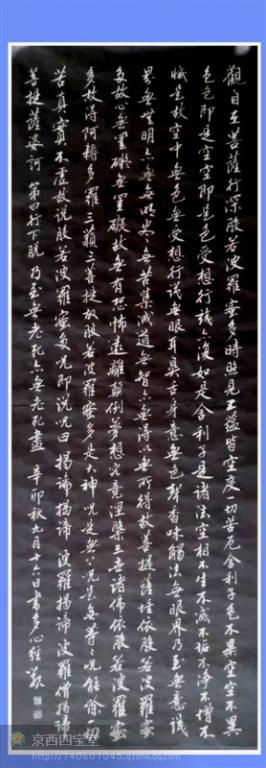 觀自在菩薩行深般若波羅蜜多時照見五蘊皆空度一切苦厄舍利子色不異空空不異
色色即是空空即是色受想行識亦復如是舍利子是諸法空相不生不滅不垢不淨不增不
減是故空中無色無受想行識無眼耳鼻舌身意無色聲香味觸法無眼界乃至無意識
界無無明亦無無明盡無苦集滅道無智亦無得以無所得故菩提薩埵依般若波羅蜜
多故心無罣礙無罣礙故無有恐怖遠離顛倒夢想究竟涅槃三世諸佛依般若波羅蜜
多故得阿耨多羅三藐三菩提故般若波羅蜜多是大神咒是無上咒是無等等咒能除一切
苦真實不虛故說般若波羅蜜多咒即說咒曰揭諦揭諦波羅揭諦波羅僧揭諦
菩提薩婆訶 第四行下脫 乃至無老死亦無老死盡 辛卯秋九月十六日書多心經
京西四宝堂
http://740607045.qzone.qq.com